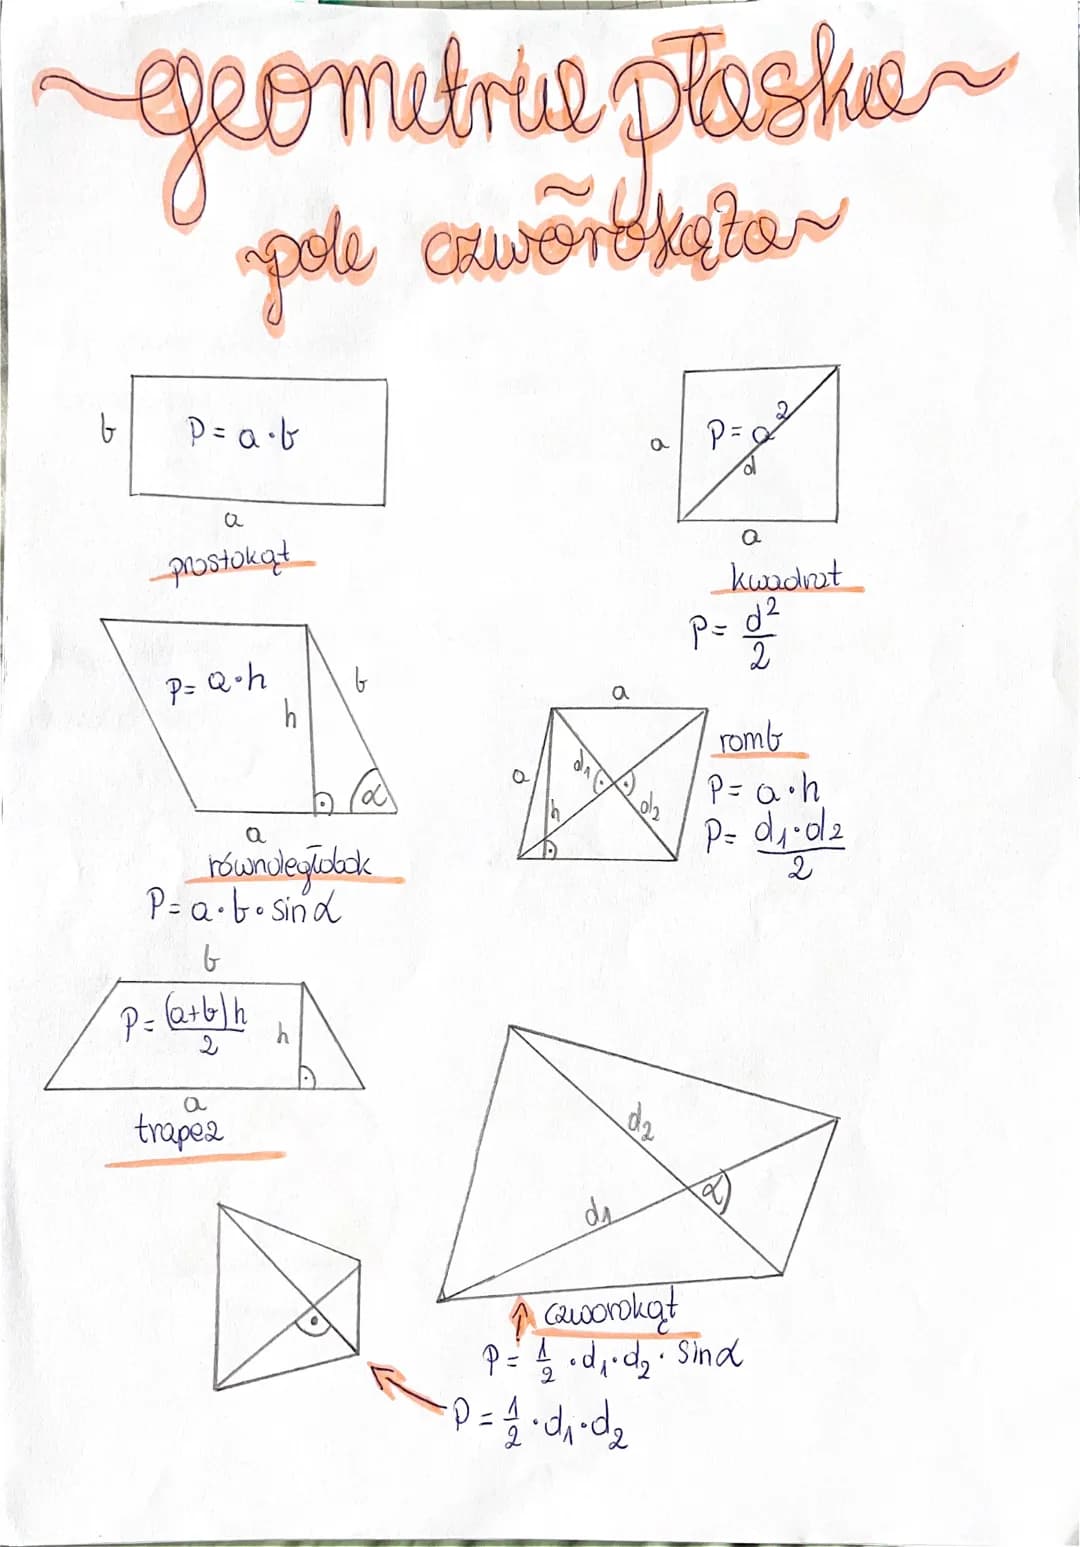 ~geometria płaska~
~pole czworokąta~
b
P = a · b
a
prostokąt
a
P = a²
d
a
kwadrat
P = d²/2
P = a · h
h
b
α
a
równoległobok
P = a · b · sin α
a
a
d₁
d₂
h
romb
P = a · h
P = d₁ · d₂/2
b
P = (a+b)h/2
h
a
trapez
d₂
d₁
α
czworokąt
P = 1/2 · d₁ · d₂ · sin α
P = 1/2 · d₁ · d₂